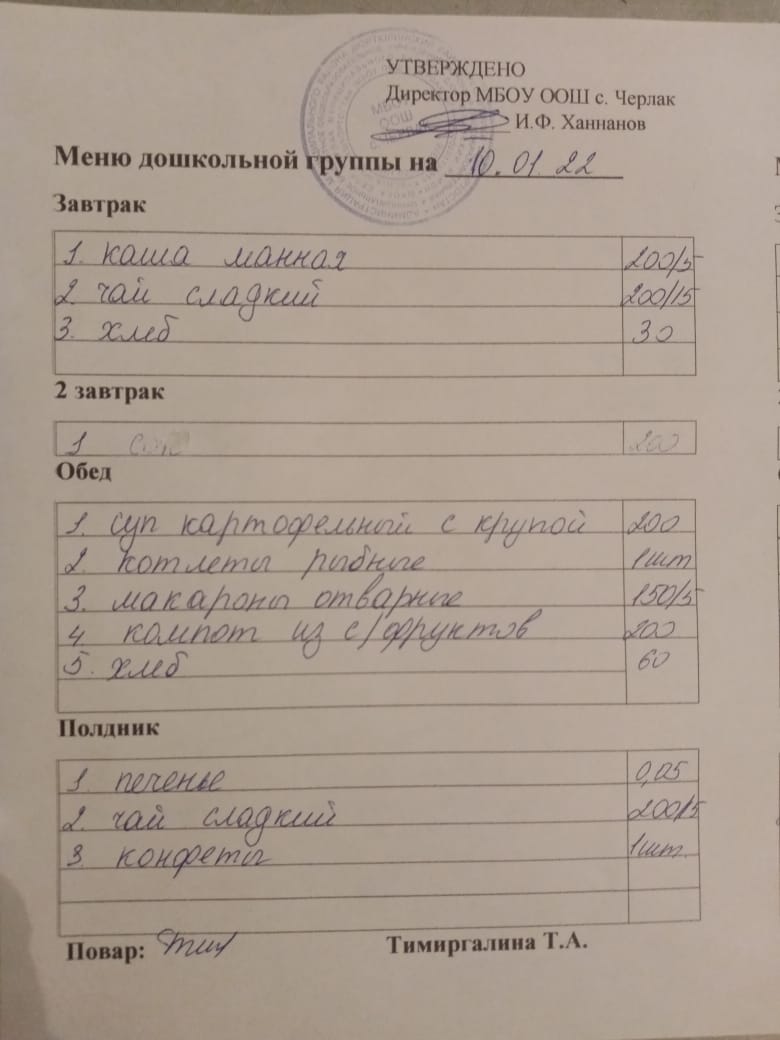 УТВЕРЖДЕНО
Директор МБОУ ООШ с. Черлак
И.Ф. Ханнанов
МБОУ
ООШ
Меню дошкольной группы на 10.01.22
Завтрак
1. каша манная 200/5
2. чай сладкий 200/15
3. хлеб 30
2 завтрак
1 сок 200
Обед
1. суп картофельный с крупой 200
2. котлеты рыбные 1шт
3. макароны отварные 150/5
4 компот из с/фруктов 200
5. хлеб 60
Полдник
1 печенье 0,05
2. чай сладкий 200/15
3. конфеты 1шт.
Повар: Тимиргалина Т.А.